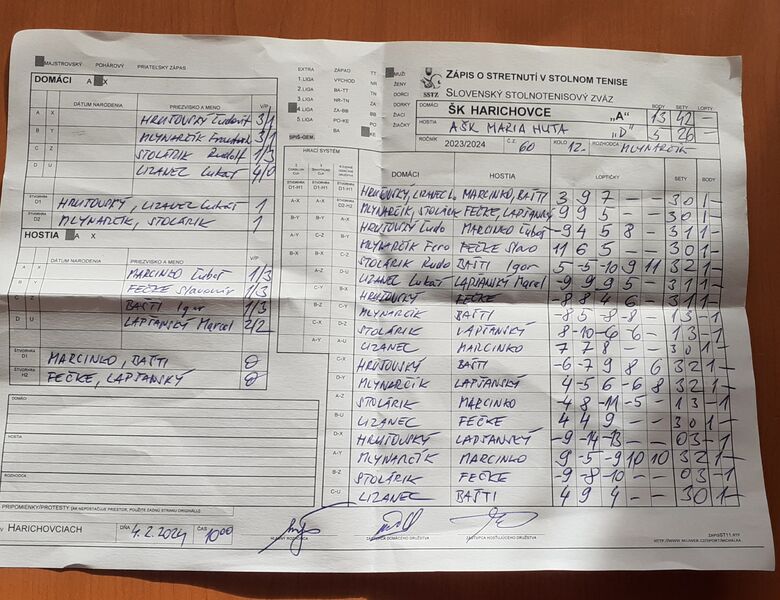 MAJSTROVSKÝ POHÁROVÝ PRIATEĽSKÝ ZÁPAS
DOMÁCI A X
DÁTUM NARODENIA PRIEZVISKO A MENO V/P
A X HRUŠOVSKÝ Ľudovít 3/1
B Y MLYNARČÍK František 3/1
C Z STOLÁRIK Rudolf 1/3
D U LIZANEC Lukáš 4/0
ŠTVORHRA D1 HRUŠOVSKÝ, LIZANEC Lukáš 1
ŠTVORHRA D2 MLYNARČÍK, STOLÁRIK 1
HOSTIA A X
DÁTUM NARODENIA PRIEZVISKO A MENO V/P
A X MARCINKO Ľuboš 1/3
B Y FEČKE Slavomír 1/3
C Z BAŠTI Igor 1/3
D U LAPŠANSKÝ Marcel 2/2
ŠTVORHRA MARCINKO, BAŠTI 0
ŠTVORHRA H2 FEČKE, LAPŠANSKÝ 0
DOMÁCI
HOSTIA
ROZHODCA
PRIPOMIENKY/PROTESTY (AK NEPOSTAČUJE PRIESTOR, POUŽITE ZADNÚ STRANU ORIGINÁLU)
V HARICHOVCIACH DŇA 4.2.2024 ČAS 10:00
HLAVNÝ ROZHODCA ZÁSTUPCA DOMÁCEHO DRUŽSTVA ZÁSTUPCA HOSŤUJÚCEHO DRUŽSTVA
EXTRA ZÁPAD TT MUŽI
1.LIGA VÝCHOD NR ŽENY
2.LIGA BA-TT DORCI
3.LIGA NR-TN ZA DORKY
4.LIGA ZA-BB ŽIACI
5.LIGA PO-KE ŽIAČKY
BA
SPIŠ-GEM.
SSTZ
ZÁPIS O STRETNUTÍ V STOLNOM TENISE
SLOVENSKÝ STOLNOTENISOVÝ ZVÄZ
BODY SETY LOPTY
DOMÁCI ŠK HARICHOVCE „A" 13 42 –
HOSTIA AŠK MARIA HUTA „D" 5 26 –
ROČNÍK 2023/2024 Č.Z. 60 KOLO 12. ROZHODCA MLYNARČÍK
HRACÍ SYSTÉM
DOMÁCI HOSTIA LOPTIČKY SETY BODY
HRUŠOVSKÝ, LIZANEC L. MARCINKO, BAŠTI 3 9 7 – – 3 0 1 –
MLYNARČÍK, STOLÁRIK FEČKE, LAPŠANSKÝ 9 9 5 – – 3 0 1 –
HRUŠOVSKÝ Ľudo MARCINKO Ľuboš -9 4 5 8 – 3 1 1 –
MLYNARČÍK Fero FEČKE Slavo 11 6 5 – – 3 0 1 –
STOLÁRIK Rudo BAŠTI Igor 5 -5 -10 9 11 3 2 1 –
LIZANEC Lukáš LAPŠANSKÝ Marcel -9 9 9 5 – 3 1 1 –
HRUŠOVSKÝ FEČKE -8 8 4 6 – 3 1 1 –
MLYNARČÍK BAŠTI -8 5 -8 -8 – 1 3 – 1
STOLÁRIK LAPŠANSKÝ 8 -10 -6 -6 – 1 3 – 1
LIZANEC MARCINKO 7 7 8 – – 3 0 1 –
HRUŠOVSKÝ BAŠTI -6 -7 9 8 6 3 2 1 –
MLYNARČÍK LAPŠANSKÝ 4 -5 6 -6 8 3 2 1 –
STOLÁRIK MARCINKO -4 8 -11 -5 – 1 3 – 1
LIZANEC FEČKE 4 4 9 – – 3 0 1 –
HRUŠOVSKÝ LAPŠANSKÝ -9 -14 -13 – – 0 3 – 1
MLYNARČÍK MARCINKO 9 -5 -9 10 10 3 2 1 –
STOLÁRIK FEČKE -9 -8 -10 – – 0 3 – 1
LIZANEC BAŠTI 4 9 4 – – 3 0 1 –